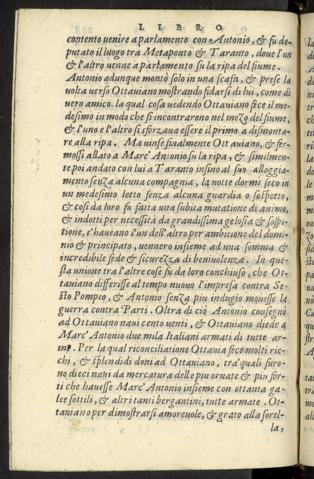 LIBRO
contento uenire a parlamento con Antonio, & fu de-
putato il luogo tra Metaponto & Taranto, doue l'un
& l'altro uenne a parlamento su la ripa del fiume.
Antonio adunque montò solo in una scafa, & prese la
uolta uerso Ottauiano mostrando fidarsi di lui, come di
uero amico. la qual cosa uedendo Ottauiano fece il med-
desimo in modo che si incontrarono nel mezo del fiume,
& l'uno e l'altro si sforzaua essere il primo a dismonta-
re alla ripa. Ma uinse finalmente Ottauiano, & fer-
mossi allato a Marc' Antonio su la ripa, & similmen-
te poi andato con lui a Taranto insino al suo alloggia-
mento senza alcuna compagnia, la notte dormì seco in
un medesimo letto senza alcuna guardia o sospetto,
& così da loro fu fatta una subita mutatione di animo,
& indotti per necessità da grandissima gelosia & sospi-
tione, c'haueano l'un dell'altro per ambitione del domi-
nio & principato, uennero insieme ad una somma &
incredibile fede & sicurezza di beniuolenza. In que-
sta unione tra l'altre cose fu da loro conchiuso, che Ot-
tauiano differisse al tempo nuouo l'impresa contra Se-
sto Pompeo, & Antonio senza piu indugio mouesse la
guerra contra Parti. Oltra di ciò Antonio consegnò
ad Ottauiano naui cento uenti, & Ottauiano diede a
Marc' Antonio due mila Italiani armati di tutte ar-
me. Per la qual riconciliatione Ottauia fece molti ric-
chi, & splendidi doni ad Ottauiano, tra' quali furo-
no dieci naui da mercatura delle piu ornate & piu for-
ti che hauesse Marc' Antonio insieme con ottanta ga-
lee sottili, & altri tanti bergantini, tutte armate. Ot-
tauiano per dimostrarsi amoreuole, & grato alla sorel-
la,